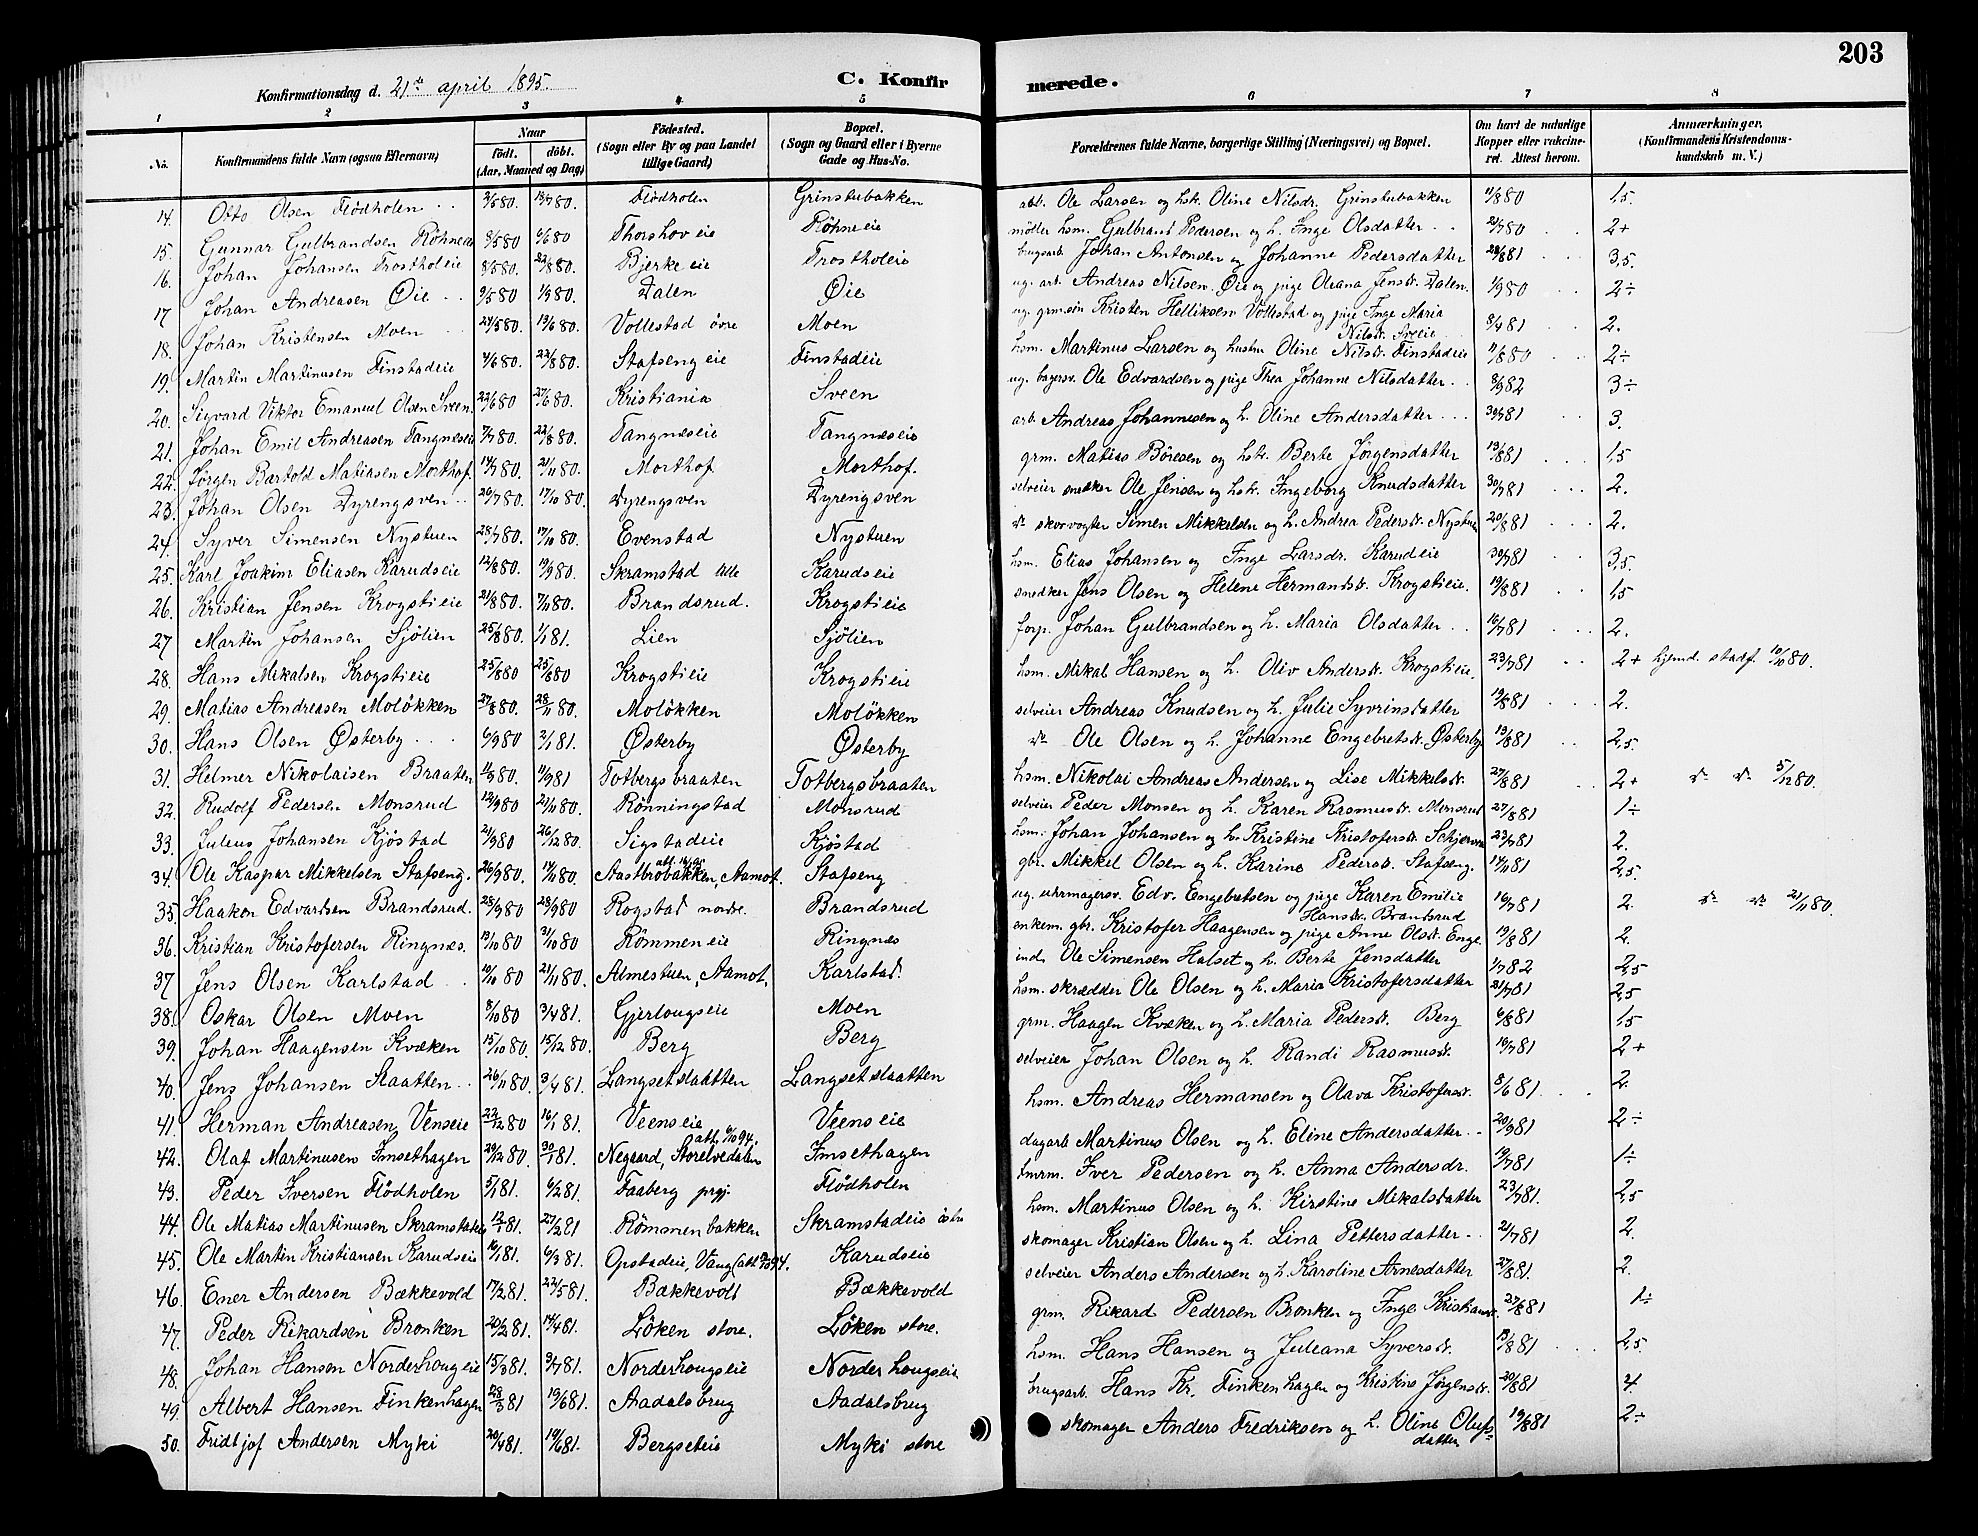 203
Konfirmationsdag d. 21de april 1895.
C. Konfirmerede.
1 2 3 4 5 6 7 8
No. Konfirmandens fulde Navn (ogsaa Efternavn) Naar födt. döbt. (Aar, Maaned og Dag) Födested. (Sogn eller By og paa Landet tillige Gaard) Bopæl. (Sogn og Gaard eller i Byerne Gade og Hus-No. Forældrenes fulde Navne, borgerlige Stilling (Næringsvei) og Bopæl. Om havt de naturlige Kopper eller vakcineret. Attest herom. Anmærkninger. (Konfirmandens Kristendomskundskab m. V.)
14. Otto Olsen Flödholen 3/580. 18/780. Flödholen Grinstubakken abt. Ole Larsen og hstr. Oline Nilsdr. Grinstubakken 11/880 1,5.
15. Gunnar Gulbrandsen Röhneeie 8/580 6/680 Thorshov eie Röhneeie möller hsm. Gulbrand Pedersen og h. Inge Olsdatter 21/780 2+
16. Johan Johansen Trostholeie 8/580. 22/880. Bjerke eie Trostholeie brugsarb. Johan Antonsen og Johanne Pedersdatter 28/881 3,5.
17 Johan Andreasen Øie 9/580 1/980. Dalen Øie ug. arb. Andreas Nilsen Øie og pige Oleana Jensdr. Dalen. 1/980 2÷
18. Johan Kristensen Moen 23/580. 13/680. Vollestad övre Moen ug. grmsön Kristen Helliksen Vollestad og pige Inge Maria Nilsdr. Sveeie 8/481 2.
19. Martin Martinusen Finstadeie 4/680. 22/880. Stafseng eie Finstadeie hsm. Martinus Larsen og hustru Oline Nilsdr. Finstadeie 11/880 2÷
20. Sigvard Viktor Emanuel Olsen Sveen. 22/680 27/680. Kristiania Sveen ug. bagersv. Ole Edvardsen og pige Thea Johanne Nilsdatter 8/982 3÷
21. Johan Emil Andreasen Tangnæseie 7/780. 22/880. Tangnæseie Tangnæseie arb. Andreas Johannesen og h. Oline Andersdatter 30/781 3.
22. Jörgen Bartold Matiasen Morthof. 14/780. 21/1180. Morthof Morthof. grm. Matias Böresen og hstr. Berte Jörgensdatter 19/881 1,5
23. Johan Olsen Dyrengsven 20/780. 17/1080. Dyrengsven Dyrengsven selveier snedker Ole Jensen og hstr. Ingeborg Knudsdatter 30/781 2.
24. Syver Simensen Nystuen 28/780. 17/1080. Evenstad Nystuen do skovvogter Simen Mikkelsen og h. Andrea Pedersdr. Nystuen 20/881 2.
25. Karl Joakim Eliasen Karudseie 12/880. 19/980. Skramstad lille Karudseie hsm. Elias Johansen og Inge Larsdr. Karudeie 30/781 3,5.
26. Kristian Jensen Krogstieie 21/880. 7/1180. Brandsrud. Krogstieie snedker Jens Olsen og Helene Hermandsdr. Krogstieie. 19/881 1,5
27 Martin Johansen Sjölien 25/880. 1/181. Lien Sjölien forp. Johan Gulbrandsen og h. Maria Olsdatter 16/781 2.
28. Hans Mikalsen Krogstieie 25/880 25/880 Krogstieie Krogstieie hsm. Mikal Hansen og h. Oliv Andersdr. Krogstieie. 23/781 2+ hjemd. stadf. 10/1080.
29. Matias Andreasen Molökken 27/880. 28/1180. Molökken Molökken selveier Andreas Knudsen og h. Julie Syvrinsdatter 19/881 2.
30. Hans Olsen Østerby 6/980 2/181. Østerby Østerby do Ole Olsen og h. Johanne Engebretsdr. Østerby 19/881 2,5.
31. Helmer Nikolaisen Braaten 11/980. 11/981 Totbergsbraaten Totbergsbraaten hsm. Nikolai Andreas Andersen og Lise Mikkelsdr. 27/881 2+ do do 5/1280.
32. Rudolf Pedersen Monsrud 12/980 21/1180. Rönningstad Monsrud selveier Peder Monsen og h. Karen Rasmusdr. Monsrud 27/881 1÷
33. Julius Johansen Kjöstad 21/980 26/1280. Sigstadeie Kjöstad hsm. Johan Johansen og h. Kristine Kristofersdr. 23/781 2.
34. Ole Kaspar Mikkelsen Stafseng. 26/980. 14/1180. Aastbrobakken, Aamot. Stafseng gbr. Mikkel Olsen og h. Karine Pedersdr. Stafseng. 14/1181 2,5.
35. Haakon Edvardsen Brandsrud. 28/980 28/980 Rogstad nordre. Brandsrud ug. uhrmagersv. Edv. Engebretsen og pige Karen Emilie Hansdr. Brandsrud 16/781 2. do do 21/1180.
36. Kristian Kristofersen Ringnæs. 13/1080 31/1080 Römmen eie Ringnæs enkem. gbr. Kristofer Haagensen og pige Anne Olsdr. Enge. 19/881 2.
37 Jens Olsen Karlstad 10/1080 21/1180. Almestuen, Aamot. Karlstad ind. Ole Simensen Halset og h. Berte Jensdatter 1/782 2,5
38. Oskar Olsen Moen 8/1080 3/481. Gjerlougseie Moen hsm. skrædder Ole Olsen og h. Maria Kristofersdatter 21/781 2,5
39. Johan Haagensen Kvæken 15/1080. 15/1280. Berg Berg grm. Haagen Kvæken og h. Maria Pedersdr. Berg 6/881 1,5
40. Jens Johansen Staatten 26/1180. 3/481. Langsetslaatten Langsetslaatten selveier Johan Olsen og h. Randi Rasmusdr. 19/781 2+
41. Herman Andreasen Venseie 22/1280 16/181. Veenseie Veenseie hsm. Andreas Hermansen og Olava Kristofersdr. 8/681 2.
42. Olaf Martinusen Imsethagen 29/1280. 30/181. Negaard, Storelvedalen Imsethagen dagarb Martinus Olsen og h. Eline Andersdatter 20/981 2÷
43. Peder Iversen Flödholen 5/181. 6/281. Faaberg prgj. Flödholen tmrm. Iver Pedersen og h. Anna Andersdr. 19/781 1÷
44. Ole Matias Martinusen Skramstadeie 12/181. 27/281 Römmenbakken Skramstadeie östre hsm. Martinus Olsen og h. Kirstine Mikalsdatter 23/781. 2,5
45. Ole Martin Kristiansen Karudseie 16/181. 6/381. Opstadeie, Vang Karudseie skomager Kristian Olsen og h. Lina Pettersdatter 21/781 2.
46. Ener Andersen Bækkevold 17/281 22/581. Bækkevold Bækkevold selveier Anders Andersen og h. Karoline Arnesdatter 27/881. 2.
47. Peder Rikardsen Bronken 20/281. 14/481. Löken store. Löken store. grm. Rikard Pedersen Bronken og Inge Kristiansdr. 27/881 1÷
48. Johan Hansen Norderhougeie 15/381. 3/781. Norderhougseie Norderhougseie hsm. Hans Hansen og Juleana Syversdr. 19/881 2,5.
49. Albert Hansen Finkenhagen 28/381 19/681. Aadalsbrug Aadalsbrug brugsarb. Hans Kr. Finkenhagen og Kristine Jörgensdr. 20/881 4.
50. Fridtjof Andersen Myki 20/481 19/681. Bergseteie Myki store skomager Anders Fredriksen og h. Oline Olufsdatter 19/881 2÷